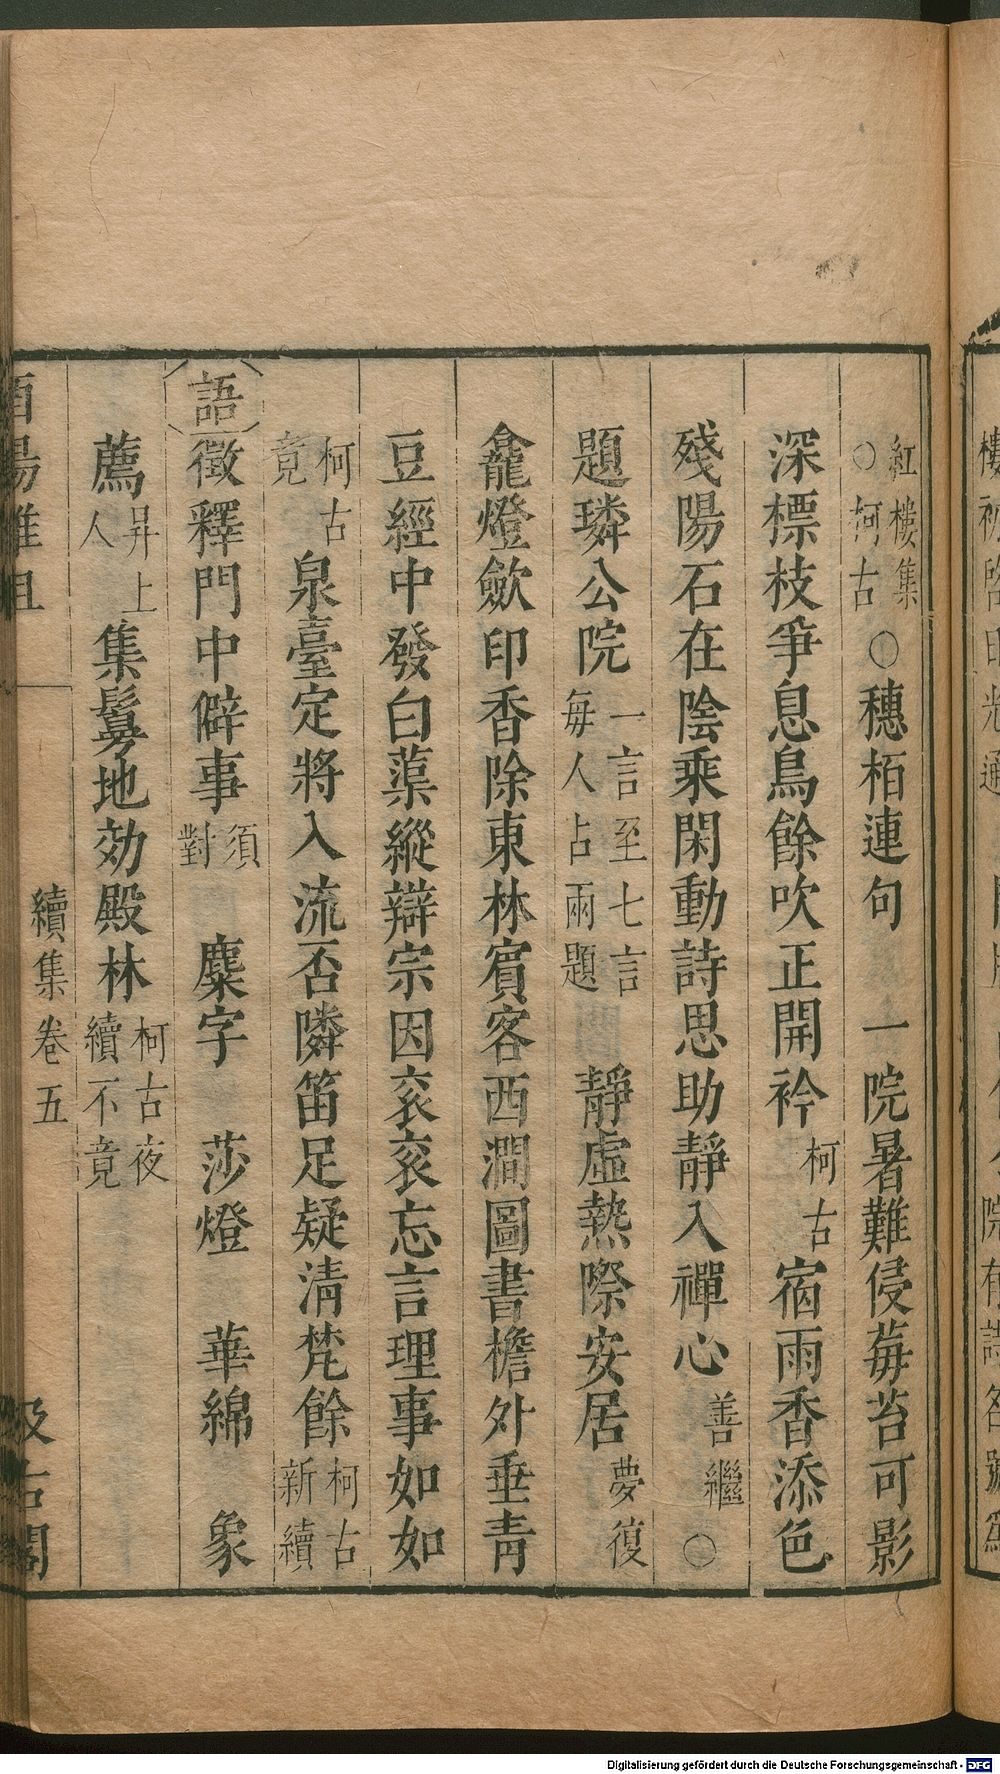 紅樓集
○柯古
○穗栢連句　一院暑難侵莓苔可影
深標枝爭息鳥餘吹正開衿柯古宿雨香添色
殘陽石在陰乘閑動詩思助靜入禪心善繼○
題璘公院一言至七言每人占兩題　靜虛熱際安居夢復
龕燈歛印香除東林賓客西澗圖書檐外垂青
豆經中發白蕖縱辯宗因衮衮忘言理事如如
柯古竟泉臺定將入流否隣笛足疑清梵餘柯古新續
語徵釋門中僻事須對　麋字　莎燈　華綿　象
薦昇上人集鬘地効殿林柯古夜續不竟
酉陽雜俎
續集卷五
汲古閣
Digitalisierung gefördert durch die Deutsche Forschungsgemeinschaft - DFG